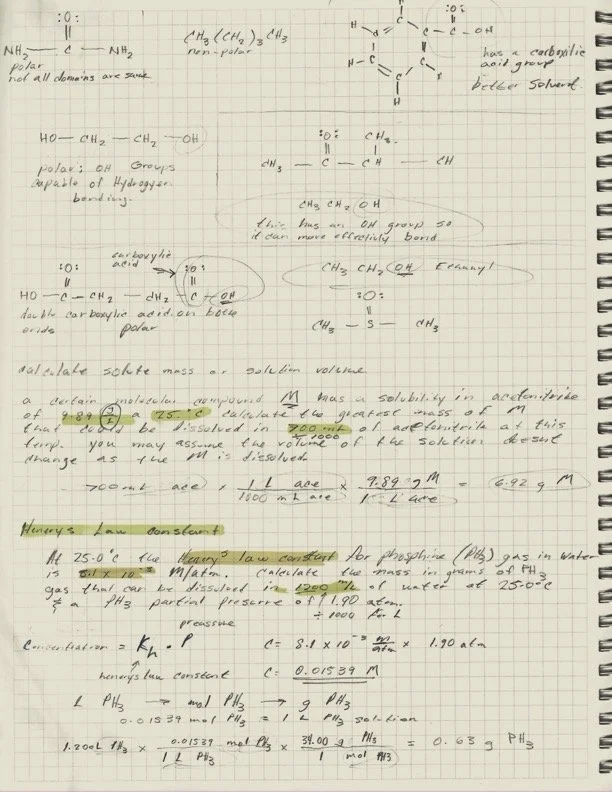 :O:
||
NH2 — C — NH2
polar
not all domains are same
CH3(CH2)3CH3
non-polar
:O:
H
C — C — OH
H
H
H
has a carboxilic
acid group
better solvent.
HO — CH2 — CH2 — OH
polar; OH Groups
capable of Hydrogyen
bonding.
:O: CH3
CH3 — C — CH — CH
CH3 CH2 OH
this has an OH group so
it can more effectivly bond
carboxylic
acid
:O: :O:
HO — C — CH2 — CH2 — C — OH
double carboxylic acid on both
ends polar
CH3 CH2 OH
:O:
CH3 — S — CH3
calculate solute mass or solution volume
a certain molecular compound M has a solubility in acetonitrike
of 9.89 g/L a 25.°C calculate the greatest mass of M
that could be dissolved in 700 mL of acetonitrile at this
÷ 1000
temp. you may assume the volume of the solution doesnt
change as the M is disolved
700 mL ace × 1 L ace / 1000 mL ace × 9.89 g M / 1 L ace = 6.92 g M
Henerys Law constant
At 25.0°C the Henry's law constant for phosphine (PH3) gas in water
is 8.1 × 10⁻³ M/atm. Calculate the mass in grams of PH3
gas that can be dissolved in 1200 mL of water at 25.0°C
& a PH3 partial pressure of 1.90 atm.
÷ 1000 for L
preassure
Concentration = Kh · P
C = 8.1 × 10⁻³ m/atm × 1.90 atm
henerys law constant
C = 0.01539 M
L PH3 → mol PH3 → g PH3
0.01539 mol PH3 = 1 L PH3 solution
1.200L PH3 × 0.01539 mol PH3 / 1 L PH3 × 34.00 g PH3 / 1 mol PH3 = 0.63 g PH3